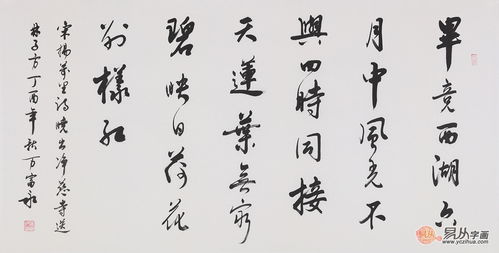 畢竟西湖六
月中風光不
與四時同接
天蓮葉無窮
碧映日荷花
别樣红
宋楊萬里詩曉出净慈寺送
林子方丁酉年秋万富永
易从字画
www.yczihua.com